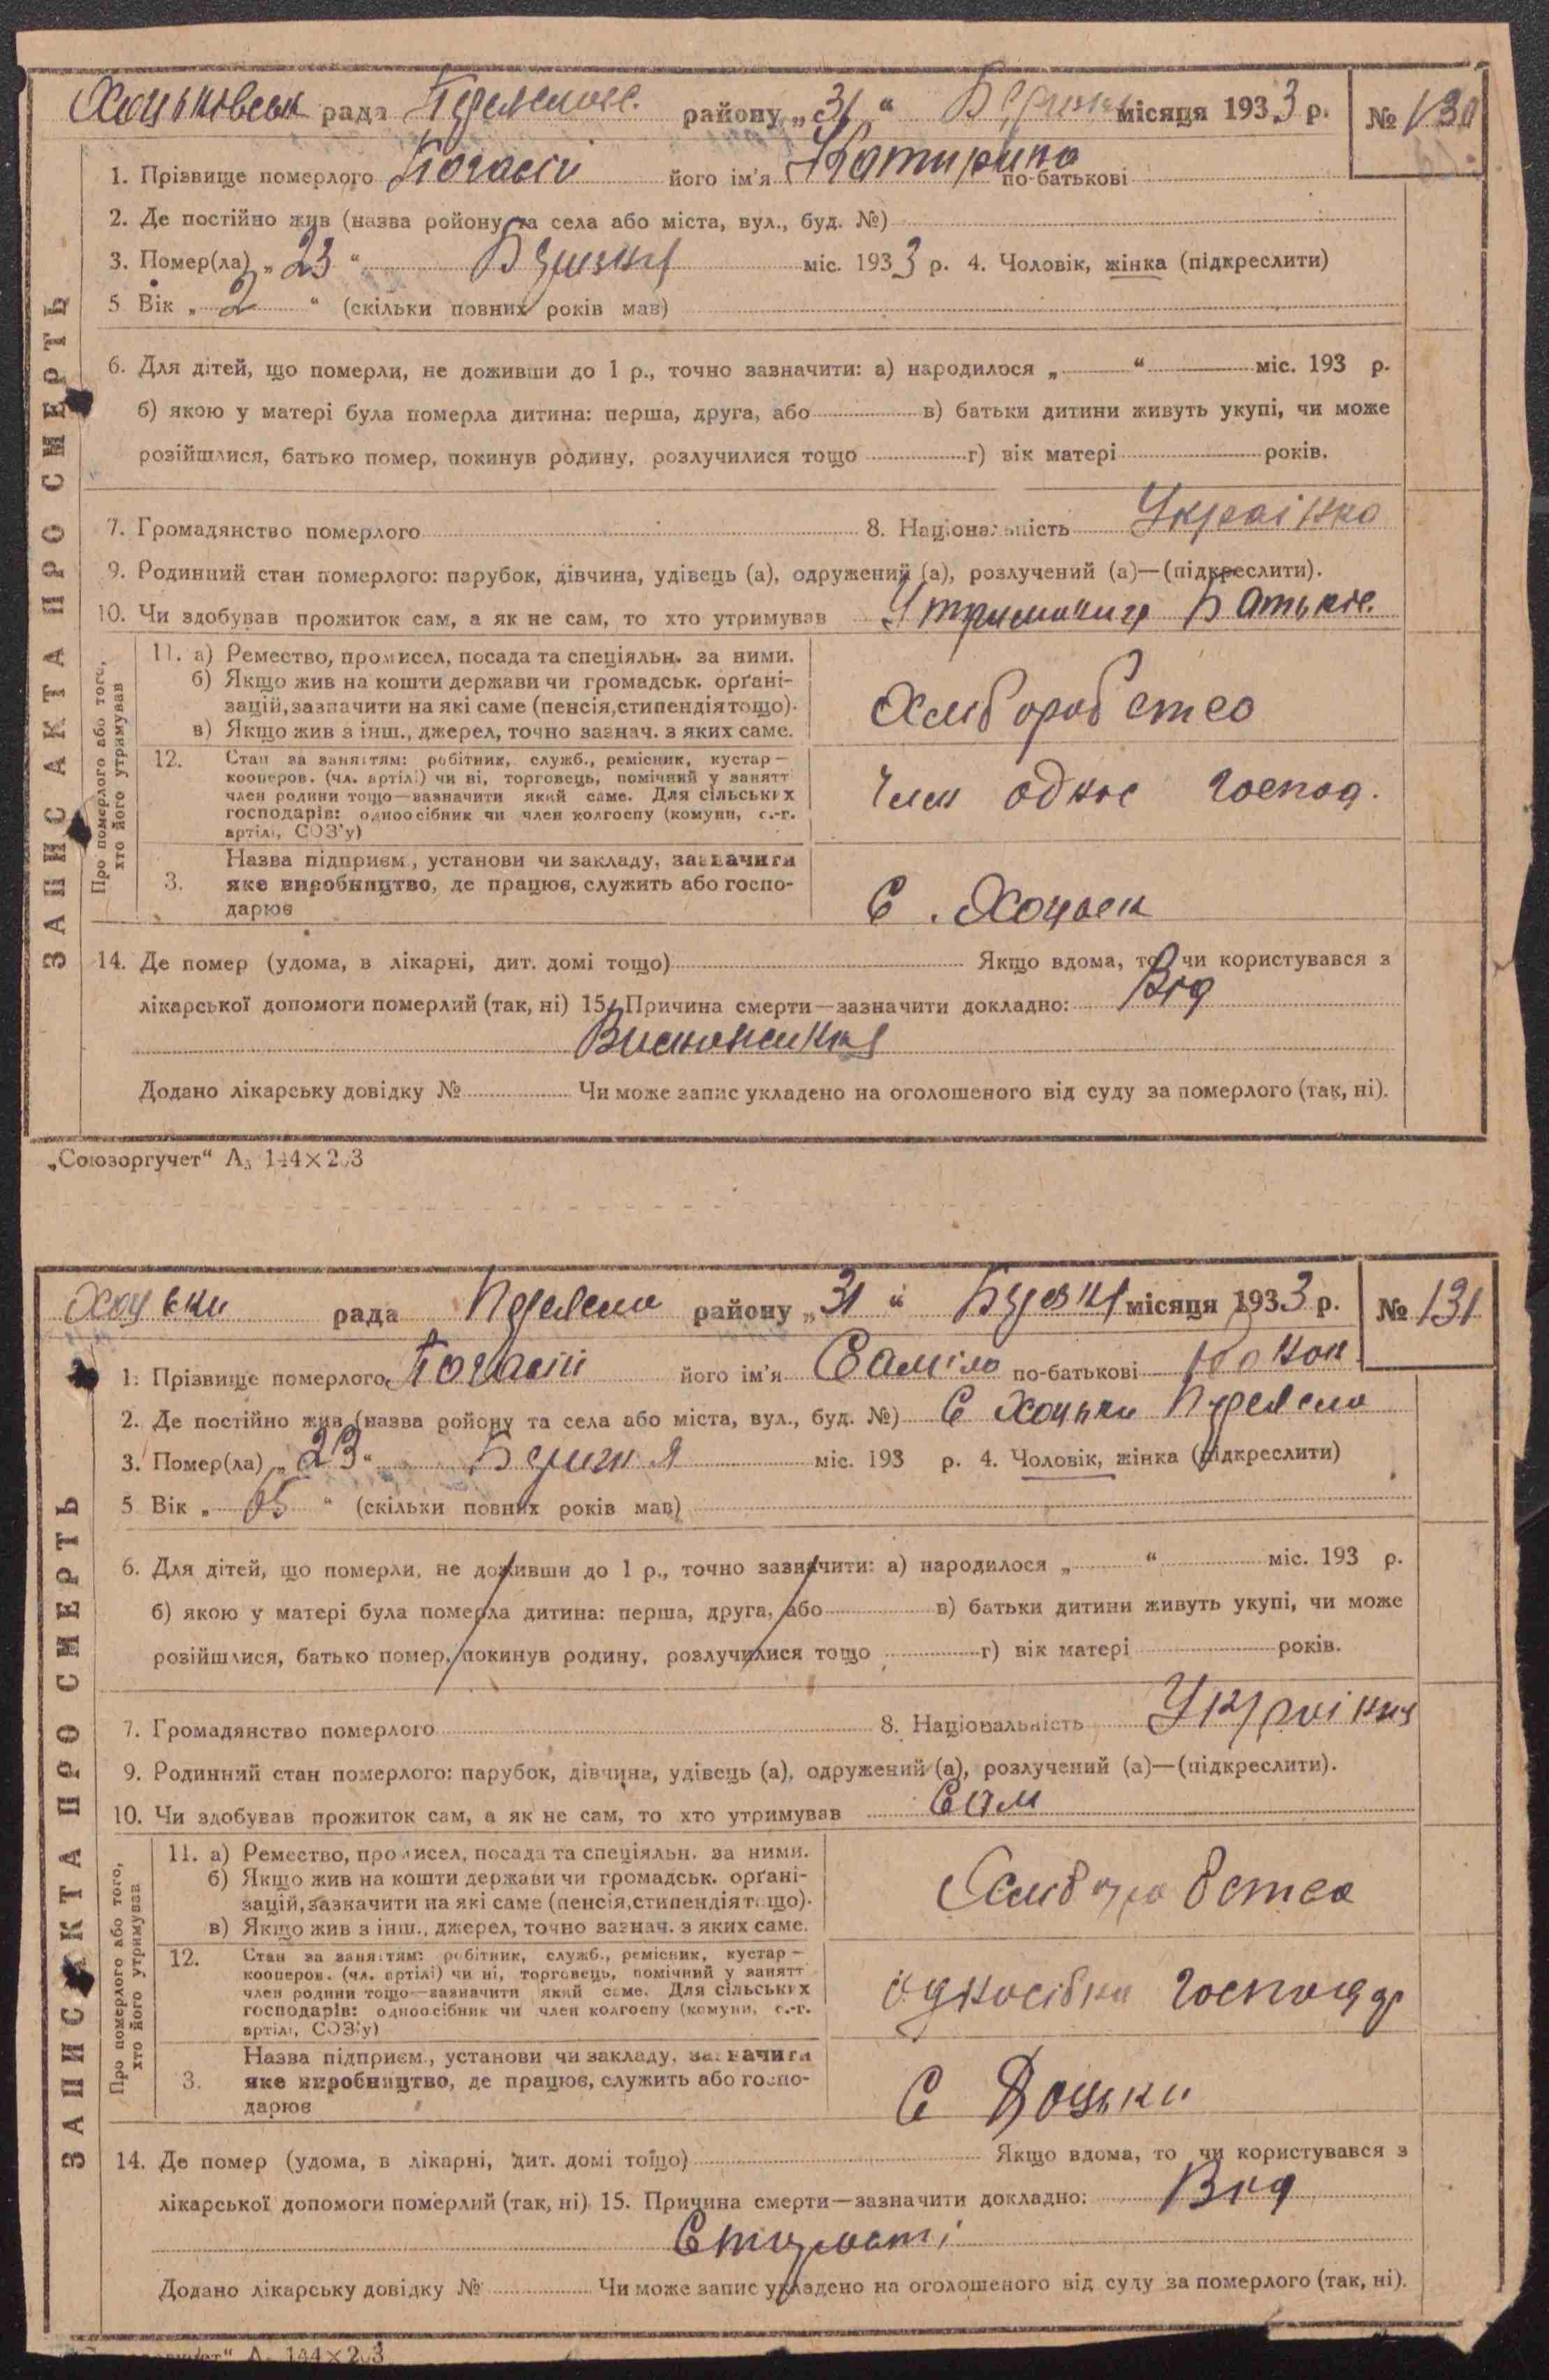 Хоцьковськ рада Переяслове. району „31“ Березня місяця 1933 р. № 130
1. Прізвище померлого його ім'я Катирина по-батькові
2. Де постійно жив (назва ройону та села або міста, вул., буд. №)
3. Помер(ла) „23“ Березня міс. 1933 р. 4. Чоловік, жінка (підкреслити)
5 Вік „2“ (скільки повних років мав)
6. Для дітей, що померли, не доживши до 1 р., точно зазначити: а) народилося „ “ міс. 193 р.
б) якою у матері була померла дитина: перша, друга, або в) батьки дитини живуть укупі, чи може
розійшлися, батько помер, покинув родину, розлучилися тощо г) вік матері років.
7. Громадянство померлого 8. Національність Українка
9. Родинний стан померлого: парубок, дівчина, удівець (а), одружений (а), розлучений (а)—(підкреслити).
10. Чи здобував прожиток сам, а як не сам, то хто утримував Утриманиця Батьків.
ЗАПИС АКТА ПРО СМЕРТЬ
Про померлого або того,
хто його утримував
11. а) Ремество, промисел, посада та спеціяльн. за ними.
б) Якщо жив на кошти держави чи громадськ. орґані-
зацій, зазначити на які саме (пенсія, стипендія тощо).
в) Якщо жив з інш., джерел, точно зазнач. з яких саме.
Хліборобство
12. Стан за заняттям: робітник, служб., ремісник, кустар—
кооперов. (чл. артілі) чи ні, торговець, помічний у занятт
член родини тощо—зазначити який саме. Для сільських
господарів: одноосібник чи член колгоспу (комуни, с.-г.
артілі, СОЗ'у)
Член однос господ.
3. Назва підприєм., установи чи закладу, зазначити
яке виробництво, де працює, служить або госпо-
дарює
С. Хоцьк
14. Де помер (удома, в лікарні, дит. домі тощо) Якщо вдома, то чи користувався з
лікарської допомоги померлий (так, ні) 15. Причина смерти—зазначити докладно: Від
Виснаження
Додано лікарську довідку № Чи може запис укладено на оголошеного від суду за померлого (так, ні).
„Союзоргучет“ А₅ 144×203
Хоцьки рада Переясла району „31“ Березня місяця 1933 р. № 131
1. Прізвище померлого його ім'я Саміло по-батькові
2. Де постійно жив (назва ройону та села або міста, вул., буд. №) С Хоцьки Переясла
3. Помер(ла) „23“ Березня міс. 193 р. 4. Чоловік, жінка (підкреслити)
5 Вік „65“ (скільки повних років мав)
6. Для дітей, що померли, не доживши до 1 р., точно зазначити: а) народилося „ “ міс. 193 р.
б) якою у матері була померла дитина: перша, друга, або в) батьки дитини живуть укупі, чи може
розійшлися, батько помер, покинув родину, розлучилися тощо г) вік матері років.
7. Громадянство померлого 8. Національність
9. Родинний стан померлого: парубок, дівчина, удівець (а), одружений (а), розлучений (а)—(підкреслити).
10. Чи здобував прожиток сам, а як не сам, то хто утримував Сам
ЗАПИС АКТА ПРО СМЕРТЬ
Про померлого або того,
хто його утримував
11. а) Ремество, промисел, посада та спеціяльн. за ними.
б) Якщо жив на кошти держави чи громадськ. орґані-
зацій, зазначити на які саме (пенсія, стипендія тощо).
в) Якщо жив з інш., джерел, точно зазнач. з яких саме.
Хліборобство
12. Стан за заняттям: робітник, служб., ремісник, кустар—
кооперов. (чл. артілі) чи ні, торговець, помічний у занятт
член родини тощо—зазначити який саме. Для сільських
господарів: одноосібник чи член колгоспу (комуни, с.-г.
артілі, СОЗ'у)
односібни господар
3. Назва підприєм., установи чи закладу, зазначити
яке виробництво, де працює, служить або госпо-
дарює
С Хоцьки
14. Де помер (удома, в лікарні, дит. домі тощо) Якщо вдома, то чи користувався з
лікарської допомоги померлий (так, ні) 15. Причина смерти—зазначити докладно: Від
Старости
Додано лікарську довідку № Чи може запис укладено на оголошеного від суду за померлого (так, ні).
144×203